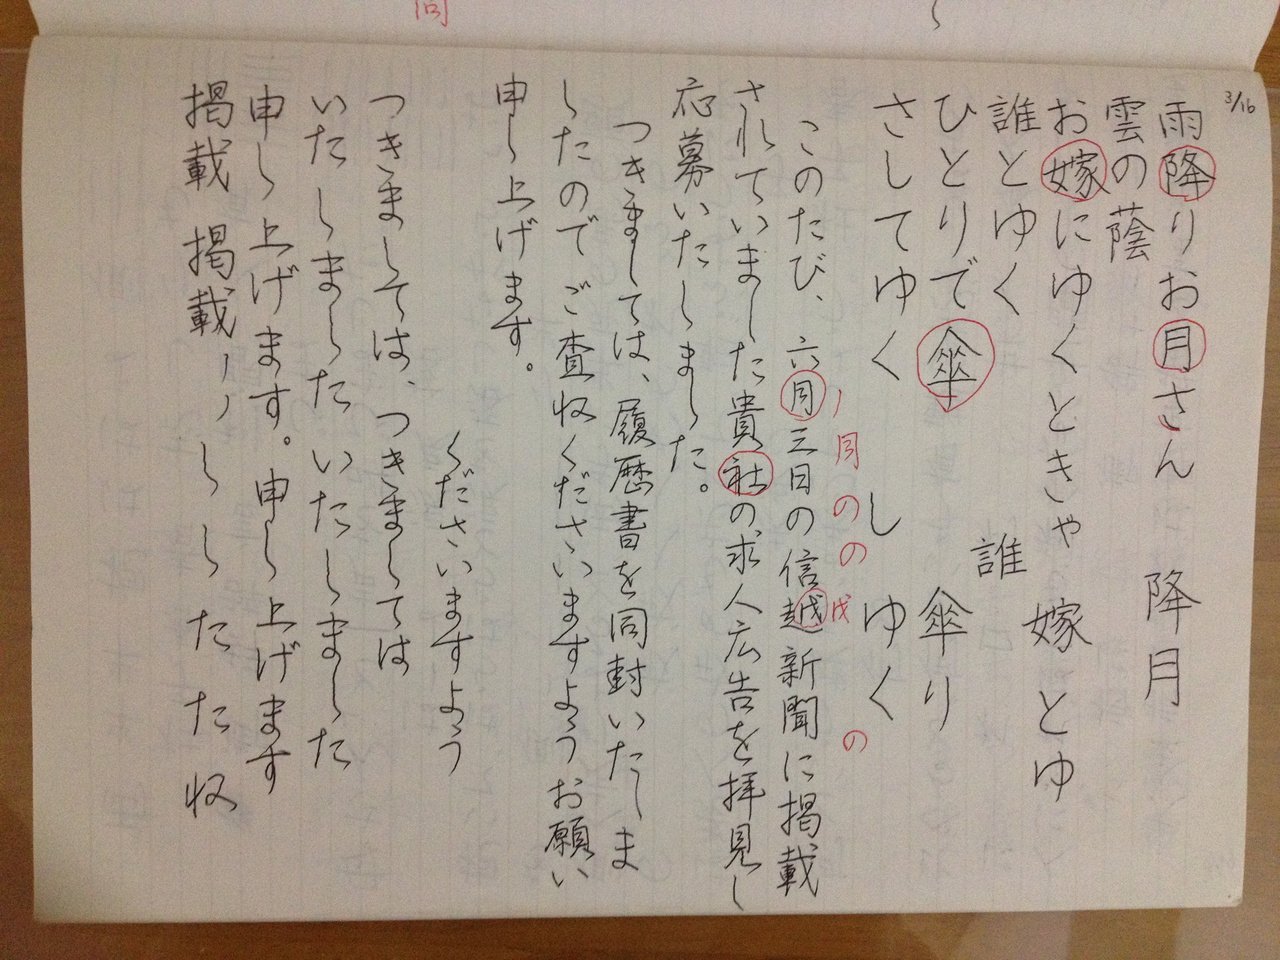 3/16
雨降りお月さん 降月
雲の蔭
お嫁にゆくときゃ 嫁とゆ
誰とゆく 誰
ひとりで傘 傘り
さしてゆく しゆく
ノ月のの戊 の
このたび、六月三日の信越新聞に掲載
されていました貴社の求人広告を拝見し
応募いたしました。
つきましては、履歴書を同封いたしま
したのでご査収くださいますようお願い
申し上げます。
くださいますよう
つきましては、つきましては
いたしましたいたしました
申し上げます。申し上げます
掲載掲載ノノししたた収
同